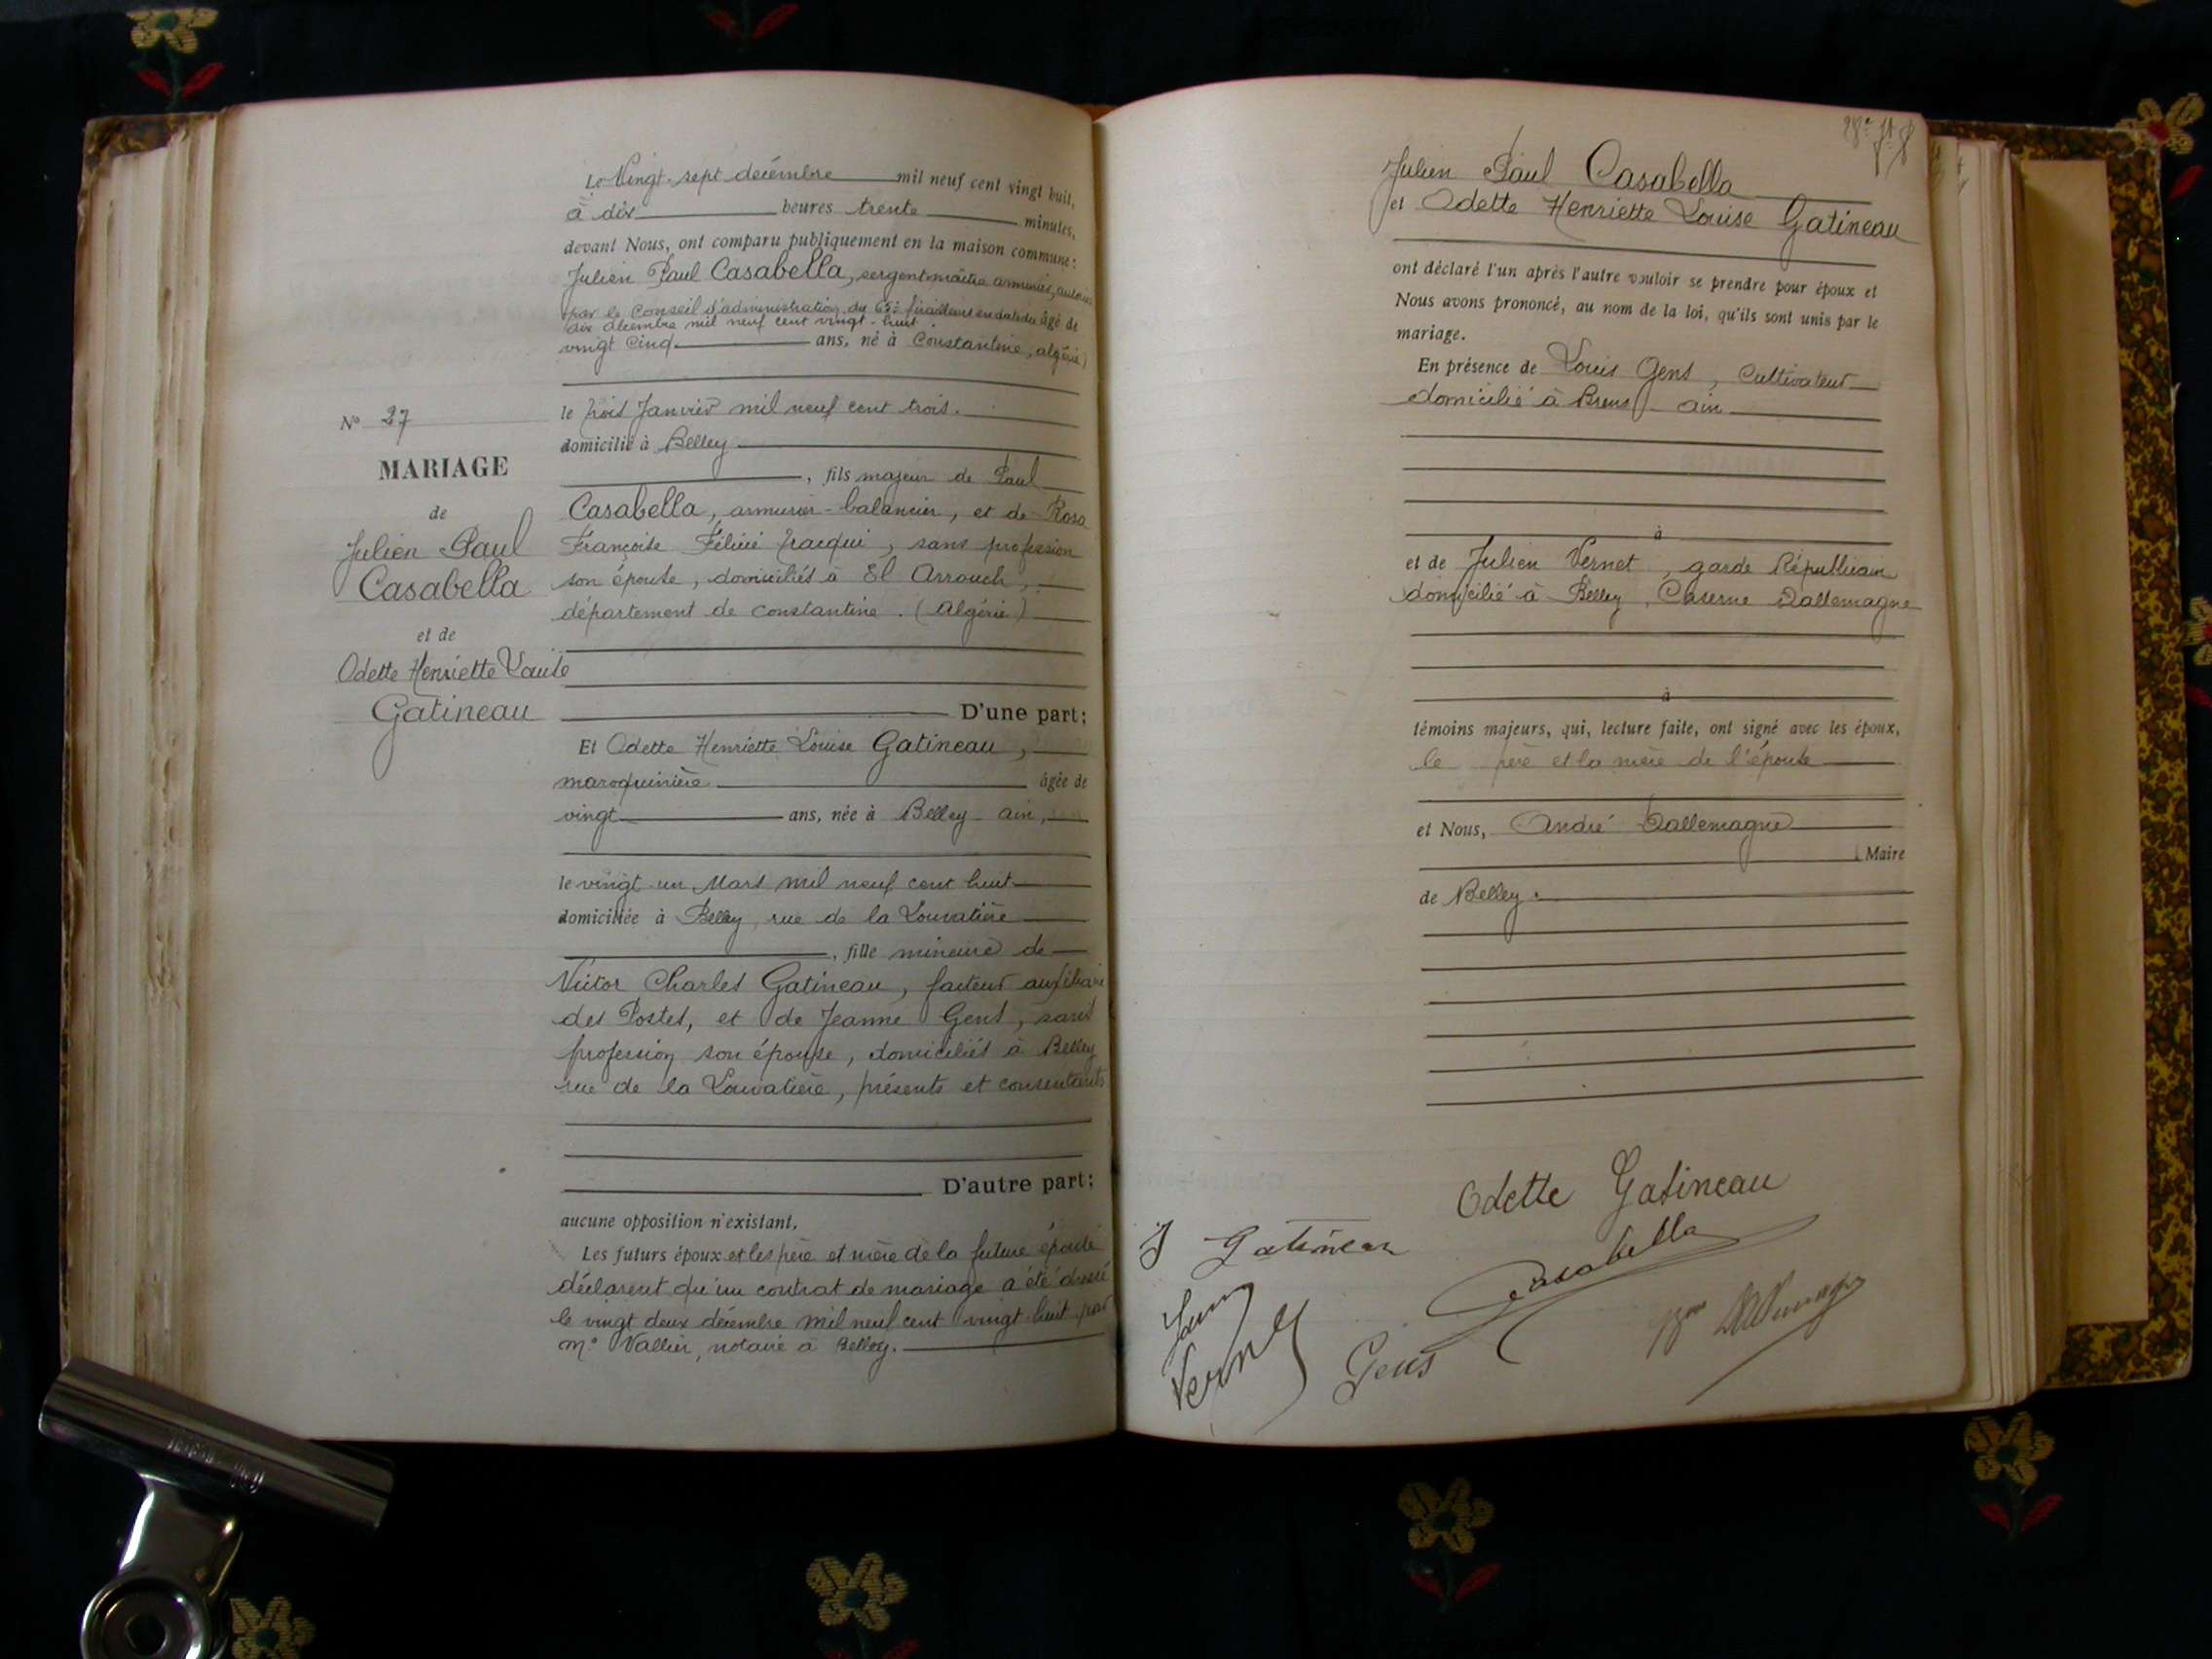 Le Vingt-sept décembre mil neuf cent vingt huit,
à dix heures trente minutes,
devant Nous, ont comparu publiquement en la maison commune:
Julien Paul Casabella, sergent maître armurier,
par le Conseil d'administration du 65e tirailleurs en date du âgé de
dix décembre mil neuf cent vingt-huit.
vingt cinq ans, né à Constantine, algérie)
le trois Janvier mil neuf cent trois.
domicilié à Belley
, fils majeur de Paul
Casabella, armurier-balancier, et de Rosa
Françoise Félicie, sans profession
son épouse, domiciliés à El Arrouch,
département de constantine. (Algérie)
D'une part;
Et Odette Henriette Louise Gatineau,
maroquinière âgée de
vingt ans, née à Belley ain,
le vingt un Mars mil neuf cent huit
domiciliée à Belley, rue de la Louvatière
, fille mineure de
Victor Charles Gatineau, facteur auxiliaire
des Postes, et de Jeanne Gens, sans
profession son épouse, domiciliés à Belley
rue de la Louvatière, présents et consentants
D'autre part;
aucune opposition n'existant,
Les futurs époux et les père et mère de la future épouse
déclarent qu'un contrat de mariage a été dressé
le vingt deux décembre mil neuf cent vingt-huit par
Me Vallier, notaire à Belley.
No 27
MARIAGE
de
Julien Paul
Casabella
et de
Odette Henriette Louise
Gatineau
Julien Paul Casabella
et Odette Henriette Louise Gatineau
ont déclaré l'un après l'autre vouloir se prendre pour époux et
Nous avons prononcé, au nom de la loi, qu'ils sont unis par le
mariage.
En présence de Louis Gens, cultivateur
domicilié à Brens ain
à
et de Julien Vernet, garde Républicain
domicilié à Belley, Caserne Dallemagne
à
témoins majeurs, qui, lecture faite, ont signé avec les époux,
le père et la mère de l'épouse
et Nous, André Dallemagne
Maire
de Belley.
Odette Gatineau
J Gatineau
Casabella
Vernet
Gens